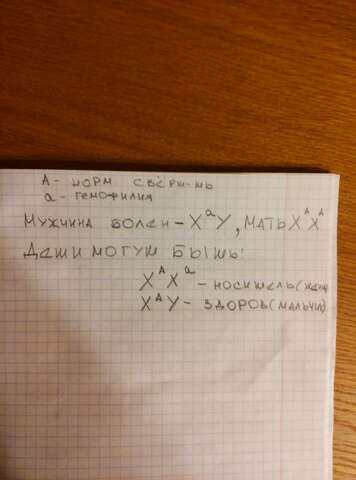 А - норм свёрт-ть
а - гемофилия
Мужчина болен - XᵃY, мать XᴬXᴬ
Дети могут быть:
XᴬXᵃ - носитель (жен
XᴬY - здоров (мальчик)